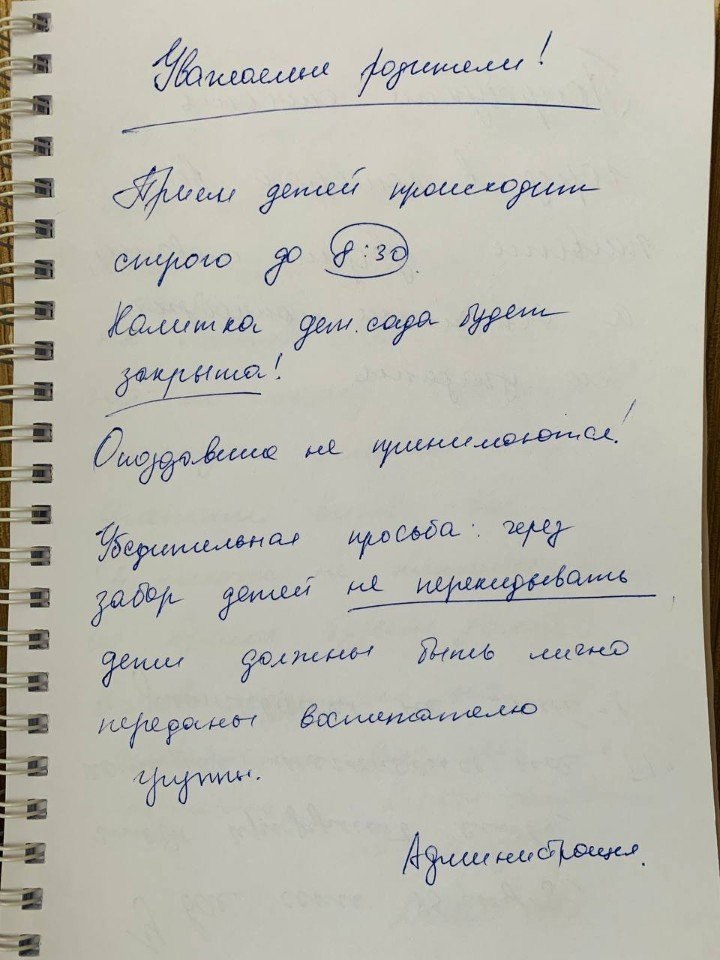 Уважаемые родители!
Прием детей происходит
строго до 8:30.
Калитка дет. сада будет
закрыта!
Опоздавшие не принимаются!
Убедительная просьба: через
забор детей не перекидывать
дети должны быть лично
переданы воспитателю
группы.
Администрация.